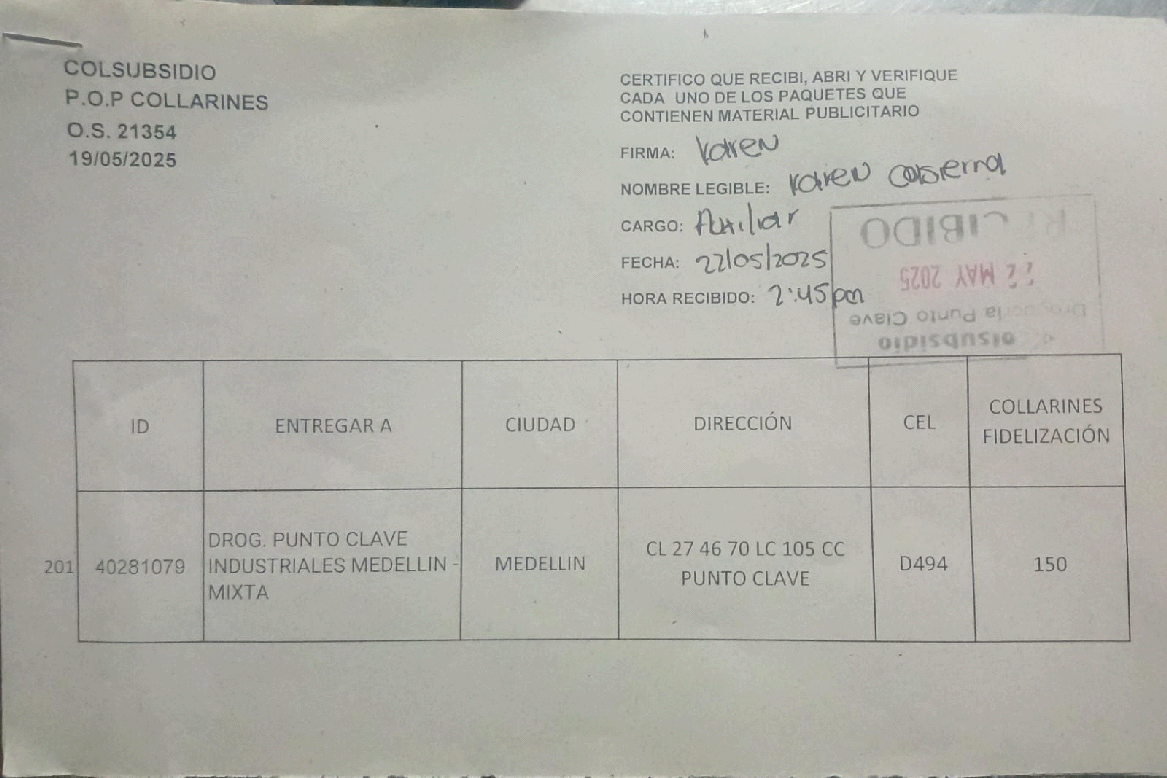 COLSUBSIDIO
P.O.P COLLARINES
O.S. 21354
19/05/2025
CERTIFICO QUE RECIBI, ABRI Y VERIFIQUE
CADA UNO DE LOS PAQUETES QUE
CONTIENEN MATERIAL PUBLICITARIO
FIRMA: Karen
NOMBRE LEGIBLE: Karen
CARGO: Auxiliar
FECHA: 22/05/2025
HORA RECIBIDO: 2:45 pm
RECIBIDO
22 MAY 2025
Droguería Punto Clave
Colsubsidio
ID ENTREGAR A CIUDAD DIRECCIÓN CEL COLLARINES FIDELIZACIÓN
201 40281079 DROG. PUNTO CLAVE INDUSTRIALES MEDELLIN - MIXTA MEDELLIN CL 27 46 70 LC 105 CC PUNTO CLAVE D494 150